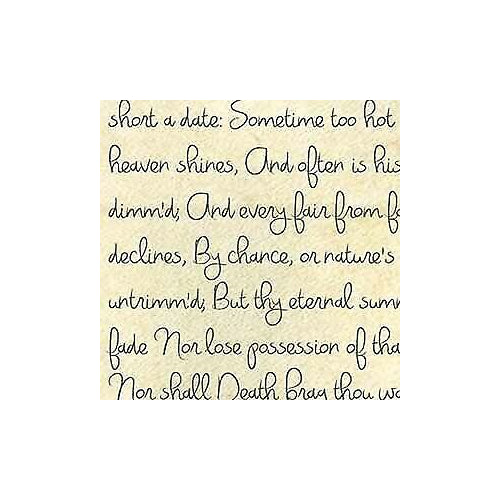 short a date: Sometime too hot
heaven shines, And often is his
dimm'd; And every fair from fa
declines, By chance, or nature's
untrimm'd; But thy eternal summ
fade Nor lose possession of tha
Nor shall Death brag thou wa